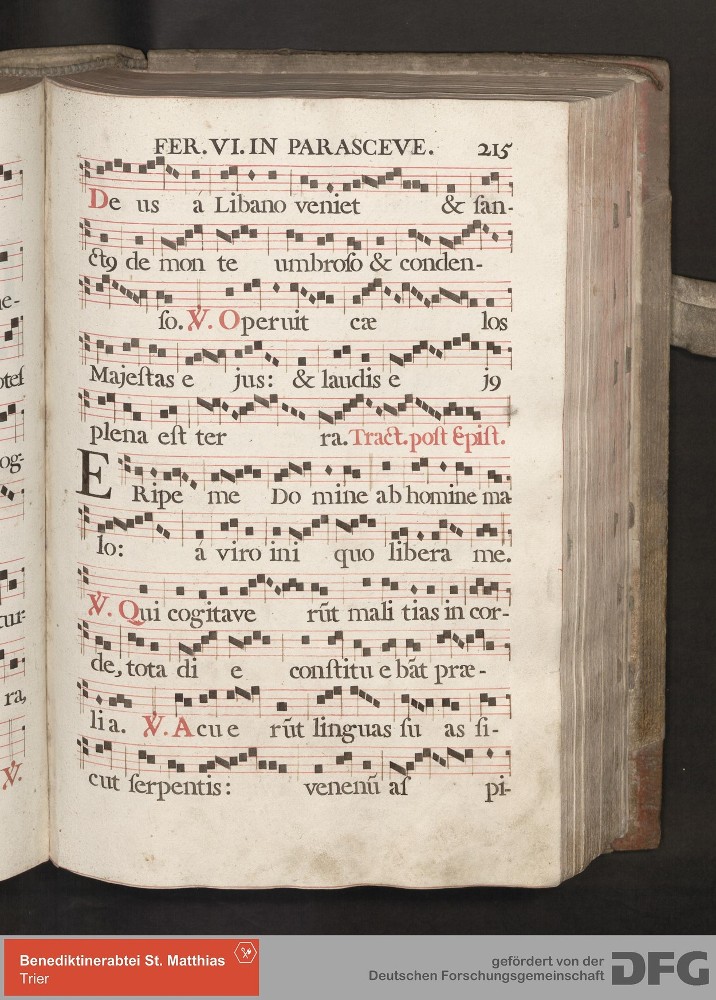 FER. VI. IN PARASCEVE. 215
De us á Libano veniet & ſan-
ctꝯ de mon te umbroſo & conden-
ſo. ℣. Operuit cæ los
Majeſtas e jus: & laudis e jꝯ
plena eſt ter ra. Tract. poſt Epiſt.
ERipe me Do mine ab homine ma
lo: á viro ini quo libera me.
℣. Qui cogitave rũt mali tias in cor-
de, tota di e conſtitu e bãt præ-
lia. ℣. Acu e rũt linguas ſu as ſi-
cut ſerpentis: venenũ aſ pi-
ra,
℣.
Benediktinerabtei St. Matthias
Trier
gefördert von der
Deutschen Forschungsgemeinschaft
DFG